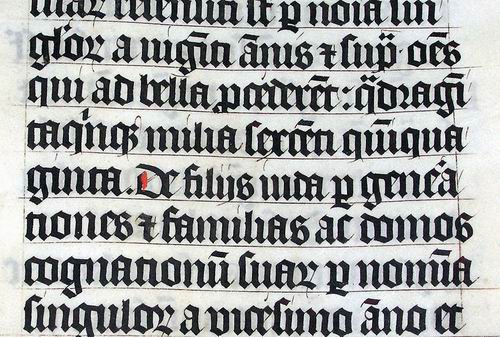 suaꝝ recensiti st̄ ꝑ noīa sin
gloꝝ a uigīti ānis ⁊ sup̄ oēs
qui ad bella ꝓcederēt : qͣdragī
taqͥnqꝫ milia sexcēti quīqua
ginta. De filijs iuda ꝑ geneͣa
tiones ⁊ familias ac domos
cognationū suaꝝ ꝑ nomīa
singuloꝝ a vicesimo āno et